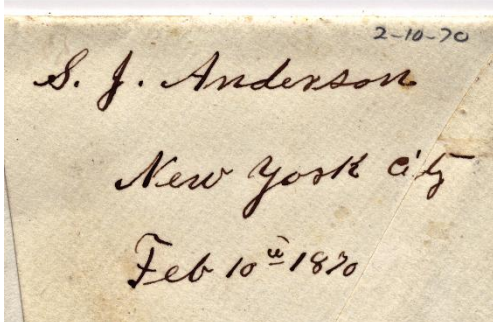 2-10-70
S. J. Anderson
New York City
Feb 10th 1870